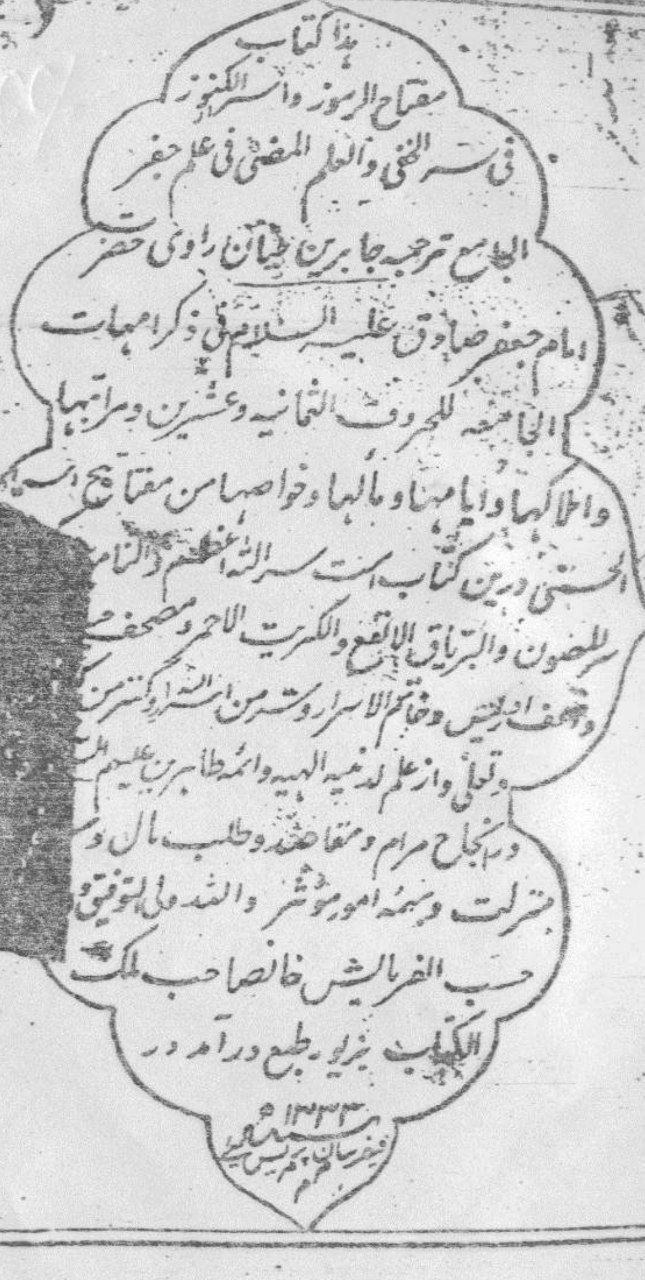 هذا کتاب
مفتاح الرموز واسرار الکنوز
فی سر الخفی والعلم المضئی فی علم جفر
الجامع ترجمه جابربن حیان راوی حضرت
امام جعفر صادق علیه السلام فی ذکر امهات
الجامعه للحروف الثمانیه وعشرین ومراتبها
واملاکها وایامها و مآلها وخواصها من مفتاح اسماء
الحسنی درین کتاب است سر الله اعظم والنا
سر للمصون والتریاق الانفع والکبریت الاحمر ومصحف
ومصحف ادریس وخاتم الاسرار وسر من اسرار وکنز من
وتعلی واز علم لدنیه الهیه وائمه طاهرین علیهم
در انجاح مرام ومقاصد وطلب مال و
منزلت وهمه امور مؤثر والله ولی التوفیق
حسب الفرمایش خانصاحب ملک
الکتاب بزیور طبع درآمد در
سنه ۱۳۳۳